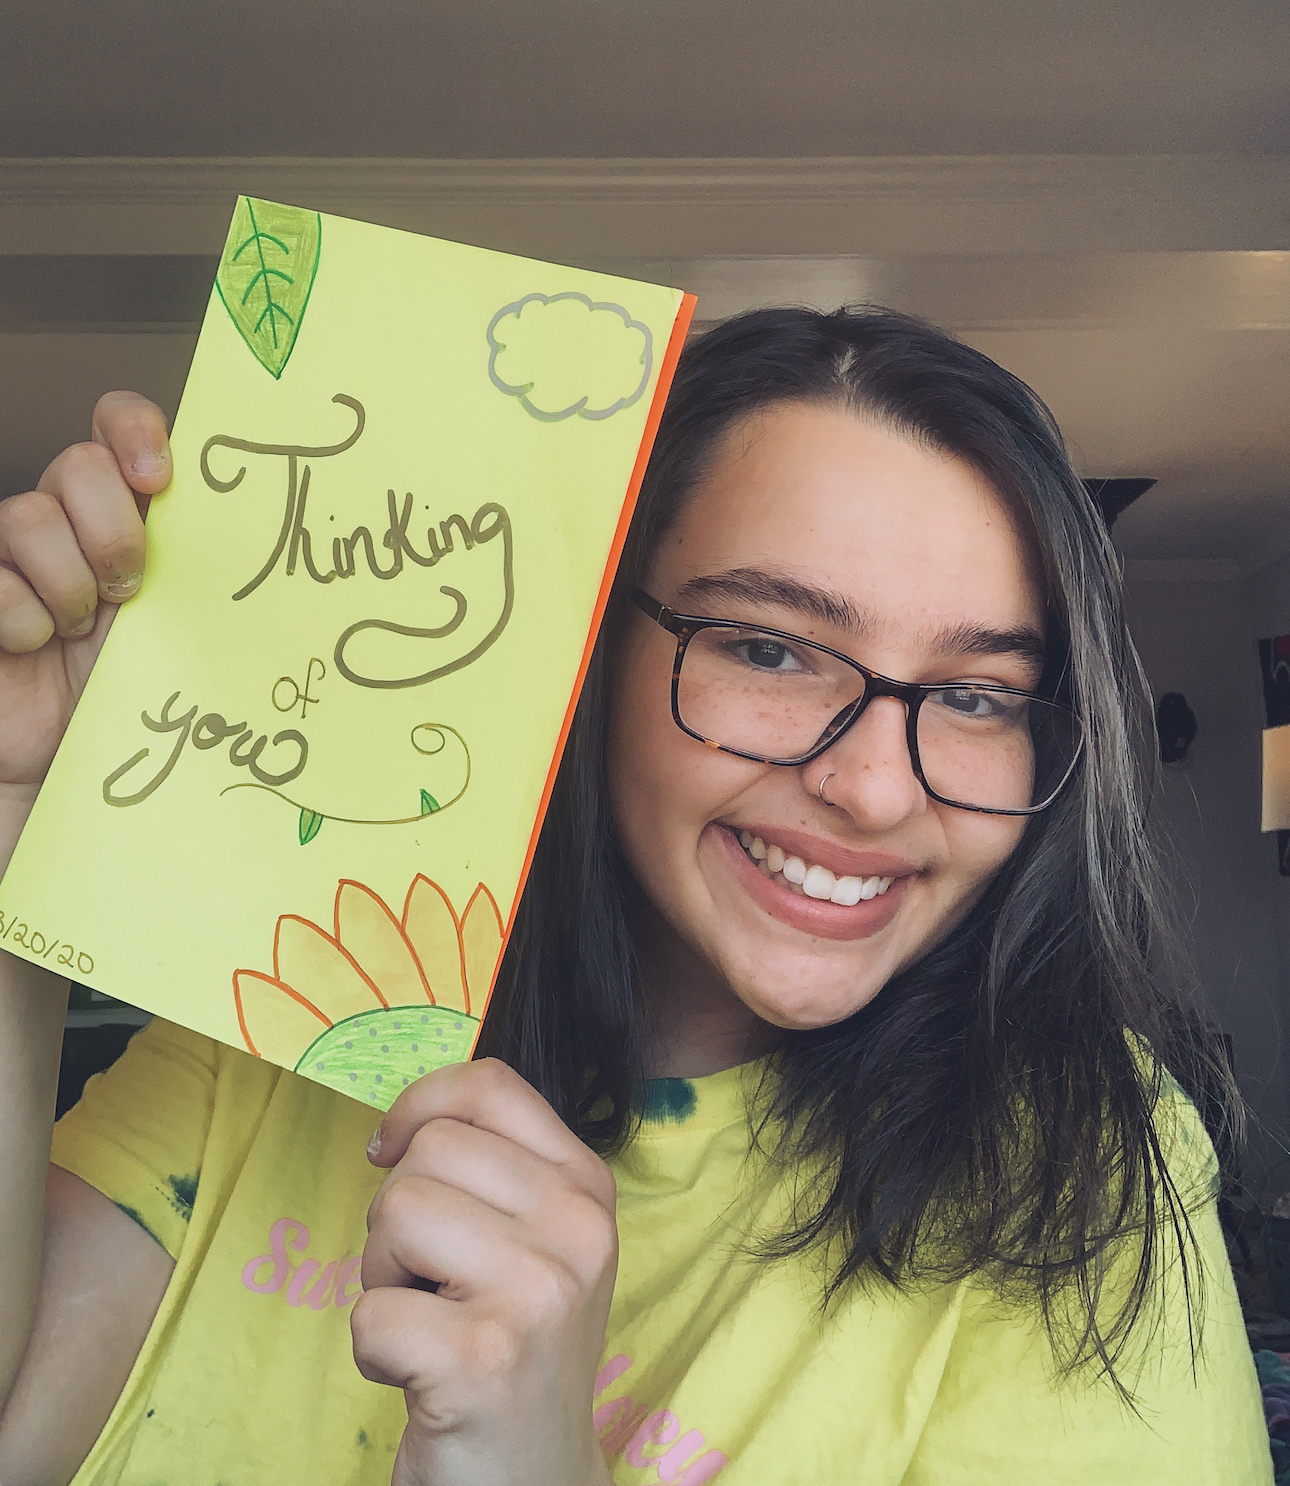 Thinking
of
you
/20/20
Swe